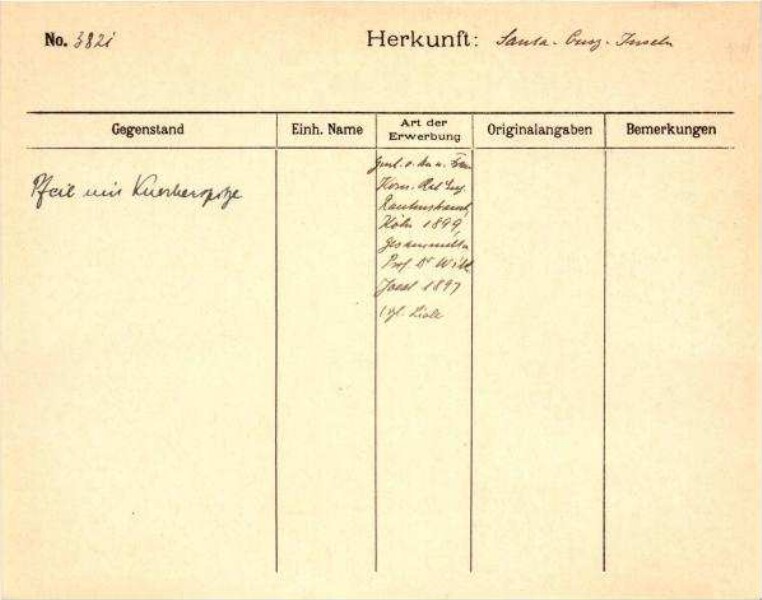 No. 382i
Herkunft: Santa-Cruz-Inseln
Gegenstand
Einh. Name
Art der Erwerbung
Originalangaben
Bemerkungen
Pfeil mit Knochenspitze
Gesch. v. Hn. u. Frau
Kom. Rat Eug.
Rautenstrauch
Köln 1899,
gesammelt v.
Prof. Dr Wilh.
Joest 1897